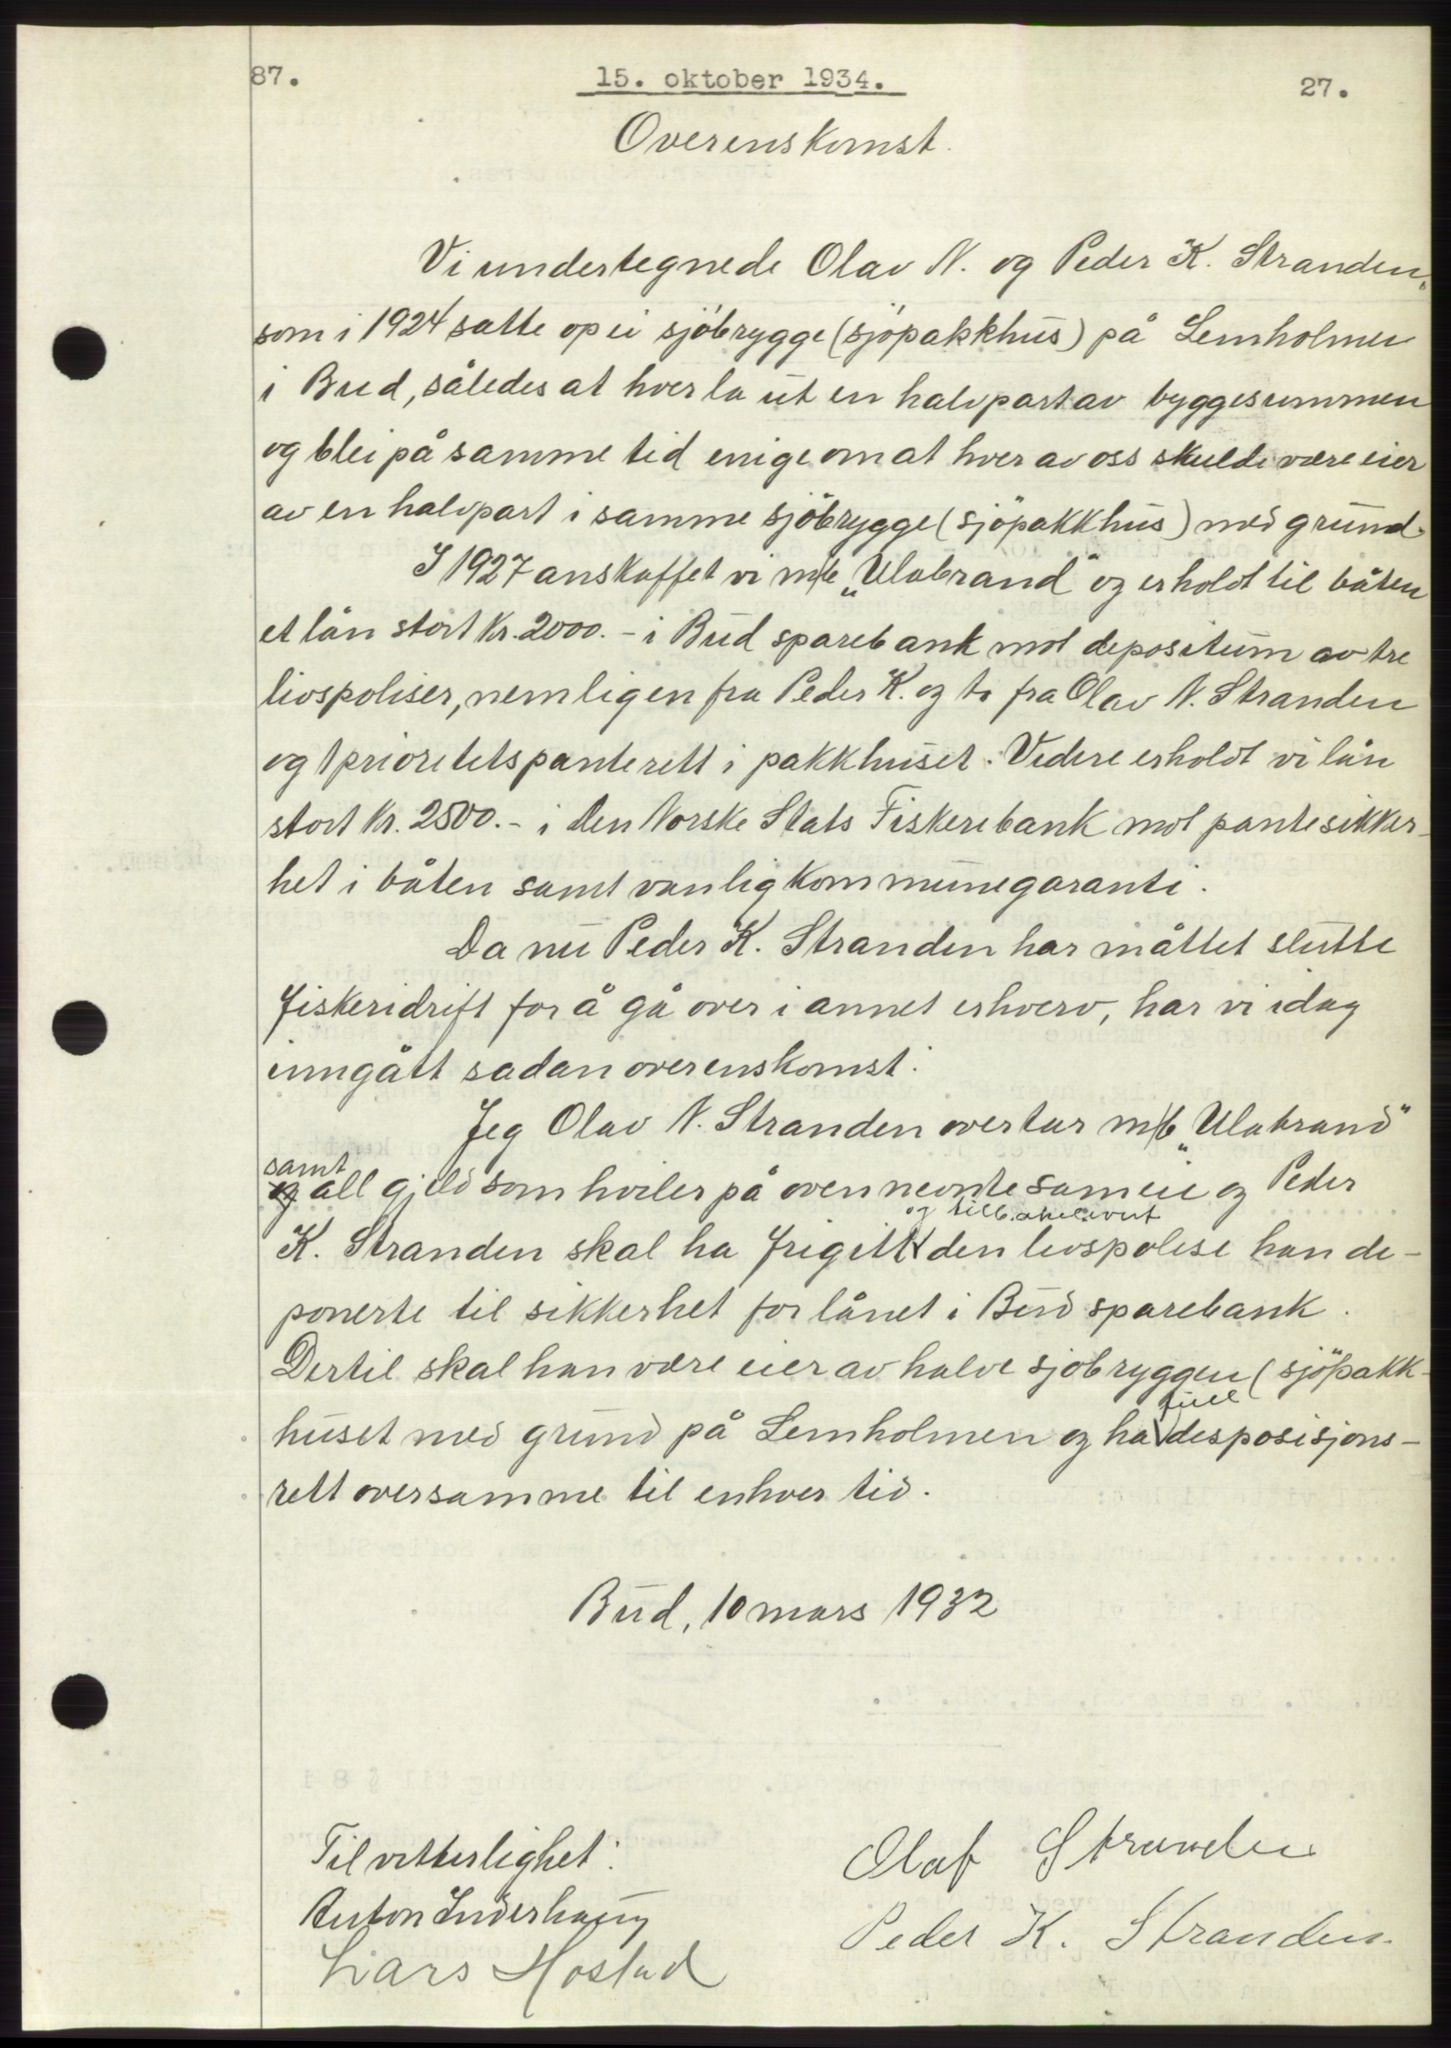 87.
15. oktober 1934.
27.
Overenskomst.
Vi undertegnede Olav N. og Peder K. Stranden,
som i 1924 satte op ei sjöbrygge (sjöpakkhus) på Lemholmen
i Bud, således at hver la ut en halvpart av byggesummen
og blei på samme tid enige om at hver av oss skulde være eier
av en halvpart i samme sjöbrygge (sjöpakkhus) med grund.
I 1927 anskaffet vi m/b „Ulabrand" og erholdt til båten
et lån stort kr. 2000.- i Bud sparebank mot depositum av tre
livspoliser, nemlig en fra Peder K. og to fra Olav N. Stranden
og 1 prioritets panterett i pakkhuset. Videre erholdt vi lån
stort kr. 2500.- i Den Norske Stats Fiskeribank mot pantesikker-
het i båten samt vanlig kommunegaranti.
Da nu Peder K. Stranden har måttet slutte
fiskeridrift for å gå over i annet erhverv, har vi idag
inngått sadan overenskomst:
Jeg Olav N. Stranden overtar m/b „Ulabrand"
samt
og all gjeld som hviler på ovennevnte sameie og Peder
og tilbakelevert
K. Stranden skal ha frigitt den livspolise han de-
ponerte til sikkerhet for lånet i Bud sparebank.
Dertil skal han være eier av halve sjöbryggen (sjöpakk-
full
huset med grund på Lemholmen og ha desposisjons-
rett over samme til enhver tid.
Bud, 10 mars 1932
Til vitterlighet:
Anton Inderhaug
Lars Hostad
Olaf Stranden
Peder K. Stranden